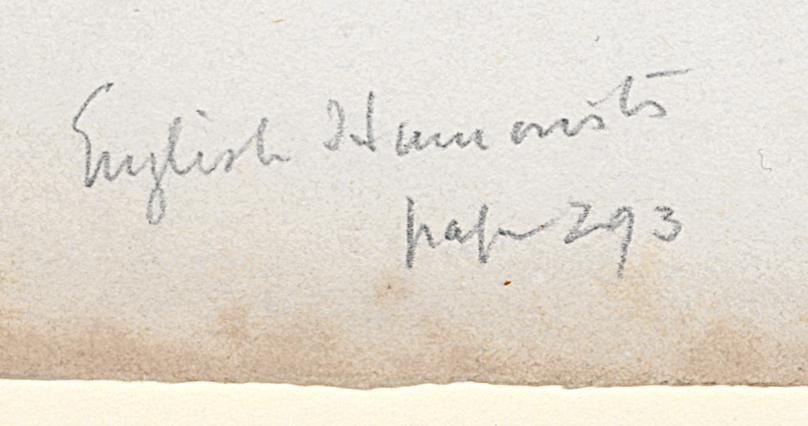 English Humourists
page 293